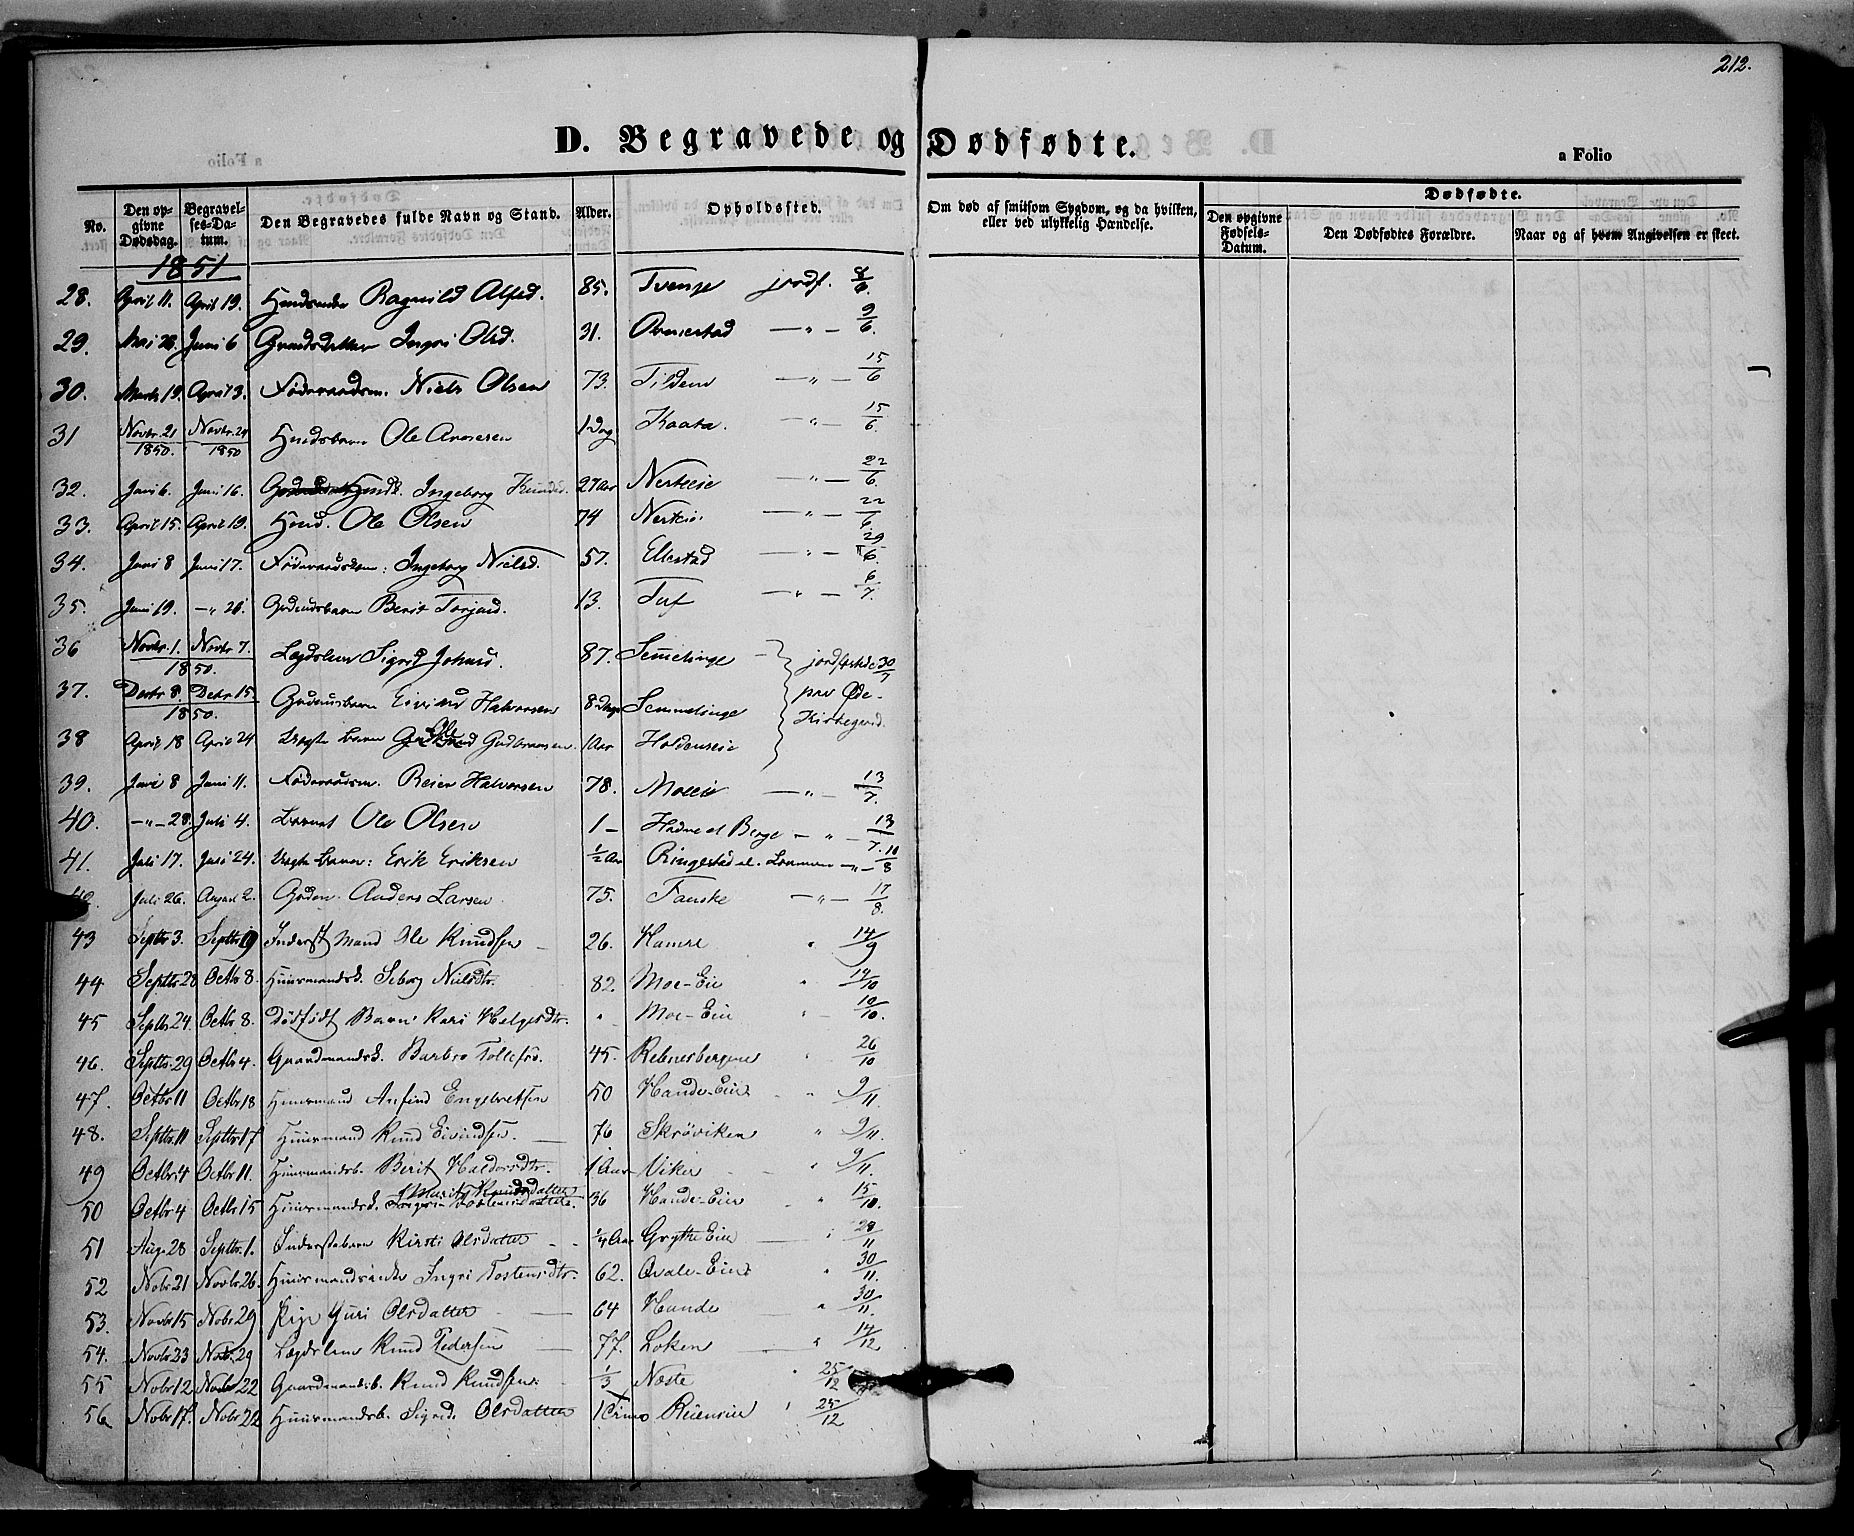 212.
D. Begravede og Dødfødte.
a Folio
No. Den opgivne Dødsdag. Begravelses-Datum. Den Begravedes fulde Navn og Stand. Alder. Opholdssted. Om død af smitsom Sygdom, og da hvilken, eller ved ulykkelig Hændelse. Dødfødte. Den opgivne Fødsels-Datum. Den Dødfødtes Forældre. Naar og af hvem Angivelsen er skeet.
1851
28. April 11. April 19. Ragnild Alfsd. 85. Tvenge jordf. 8/6.
29. Mai 28. Juni 6 Ingri Olsd. 31. —"— 9/6.
30. Marts 19. April 3. Føderaadsm. Niels Olsen 73. Tildem —"— 15/6
31 Novbr. 21 1850. Novbr. 24 1850 Husdsbarn Ole Arnesen 1 Dag Kaata. —"— 15/6.
32. Juni 6. Juni 16. Ingeborg Knudsd. 27 Aar Nerkeie —"— 22/6.
33. April 15. April 19. Ole Olsen 74 Nerkeie —"— 22/6.
34. Juni 8 Juni 17. Føderaadskone: Ingeborg Nielsd. 57. Ellestad —"— 29/6.
35. Juni 19. —"— 26. Berit Torjusd. 13. Tuf —"— 6/7.
36 Novbr. 1. Novbr. 7. 1850. Lægdslem Sigrid Johnsd. 87. Semelinge jordfæstede 30/7
37. Decbr 8. Decbr 15. 1850. Gudmusbarn Eivind Halvorsen 8 Dage Semmelinge paa Øde-
38 April 18 April 24 Uægte Barn Ole Gudbransen. 1 Aar Holdenseie Kirkegaard.
39. Juni 8 Juni 11. Føderaadsm. Reier Halvorsen 78. Moeeie —"— 13/7.
40. —"— 28. Juli 4. Barnet Ole Olsen 1 — Hadne et Berge —"— 13/7.
41. Juli 17. Juli 24. Uægte Barn: Erik Eriksen ½ Aar Ringestad —"— 10/8
42. Juli 26. August 2. Gudm. Anders Larsen 75. Fauske —"— 17/8.
43 Septbr 3. Septbr 19 Inderst Mand Ole Knudsen — 26. Hamre " 14/9
44 Septbr 28 Octbr 8. Huusmandsk. Seborg Nielsdtr. 82. Moe-Eie " 19/10
45 Septbr 24. Octbr 8. Dødfødt Barn: Kari Helgesdtr. " Moe-Eie " 19/10.
46. Septbr. 29 Octbr 4. Gaardmandsk. Barbro Tollefsd. 45. Rebnesbergene " 26/10
47. Octbr 11 Octbr 18 Huusmand Anfind Engebretsen 50 Hande-Eie " 9/11.
48. Septbr. 11 Septbr. 17 Huusmand Knud Eivindsen. — 76 Skrøviken " 9/11.
49 Octbr. 4 Octbr. 11. Huusmandsb. Berit Haldorsdtr. 1 Aar Viker " 9/11.
50 Octbr 4 Octbr 15 Huusmandsk. Marit Knudsdatter 36 Hande-Eie " 15/10.
51 Aug. 28 Septbr. 1. Inderstebarn Kirsti Olsdatter ¼ Aar Grythe Eie " 28/11
52 Nobr 21 Novbr 26. Huusmandsenke Ingri Tostensdtr. 62. Qvale-Eie " 30/11.
53. Novbr 15 Nobr 29 Pige Guri Olsdatter — 64 Hande " 30/11.
54. Novbr 23 Nobr. 29 Lægdslem Knud Pedersen 77. Loken " 14/12
55 Nobr 12 Nobr 22 Gaardmandsb. Knud Knudsen. 1/3 Næste " 25/12
56 Nobr 17. Nobr 22 Huusmandsb. Sigrid Olsdatter Reienseie " 25/12